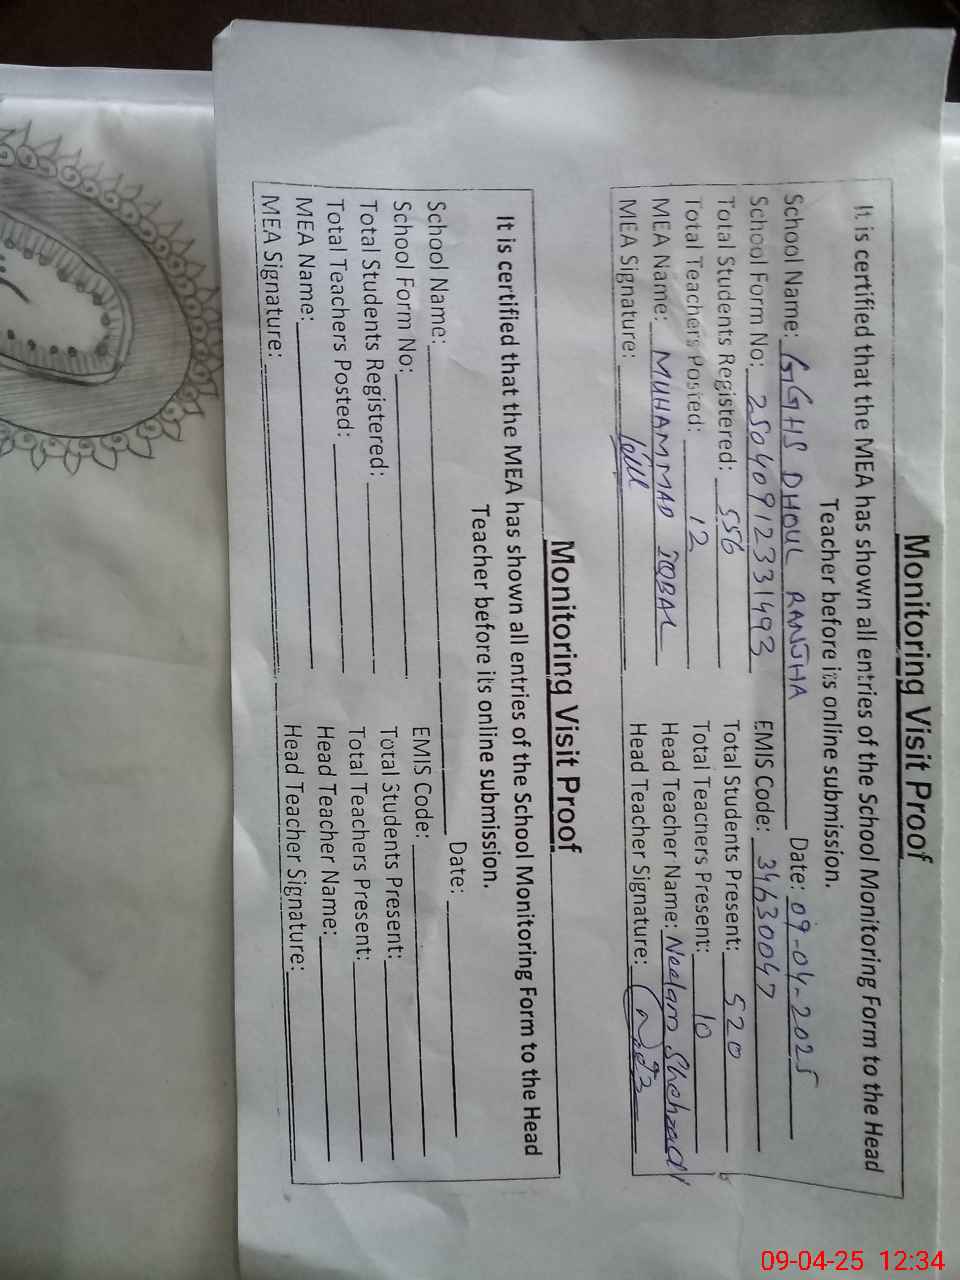 Monitoring Visit Proof
It is certified that the MEA has shown all entries of the School Monitoring Form to the Head
Teacher before its online submission.
School Name: GGHS DHOUL RANJHA Date: 09-04-2025
School Form No: 25040912331493 EMIS Code: 34630047
Total Students Registered: 556 Total Students Present: 520
Total Teachers Posted: 12 Total Teachers Present: 10
MEA Name: MUHAMMAD IQBAL Head Teacher Name: Neelam Shehzadi
MEA Signature: Head Teacher Signature:
Monitoring Visit Proof
It is certified that the MEA has shown all entries of the School Monitoring Form to the Head
Teacher before its online submission.
School Name: Date:
School Form No: EMIS Code:
Total Students Registered: Total Students Present:
Total Teachers Posted: Total Teachers Present:
MEA Name: Head Teacher Name:
MEA Signature: Head Teacher Signature:
09-04-25 12:34